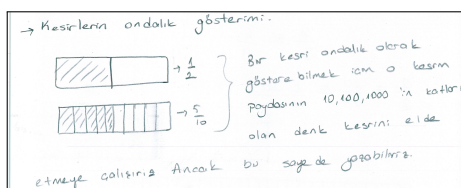 → Kesirlerin ondalık gösterimi.
→ 1/2
→ 5/10
Bir kesri ondalık olarak
göstere bilmek için o kesrin
Paydasının 10,100,1000 'in katları
olan denk kesrini elde
etmeye çalışırız Ancak bu sayede yazabiliriz.